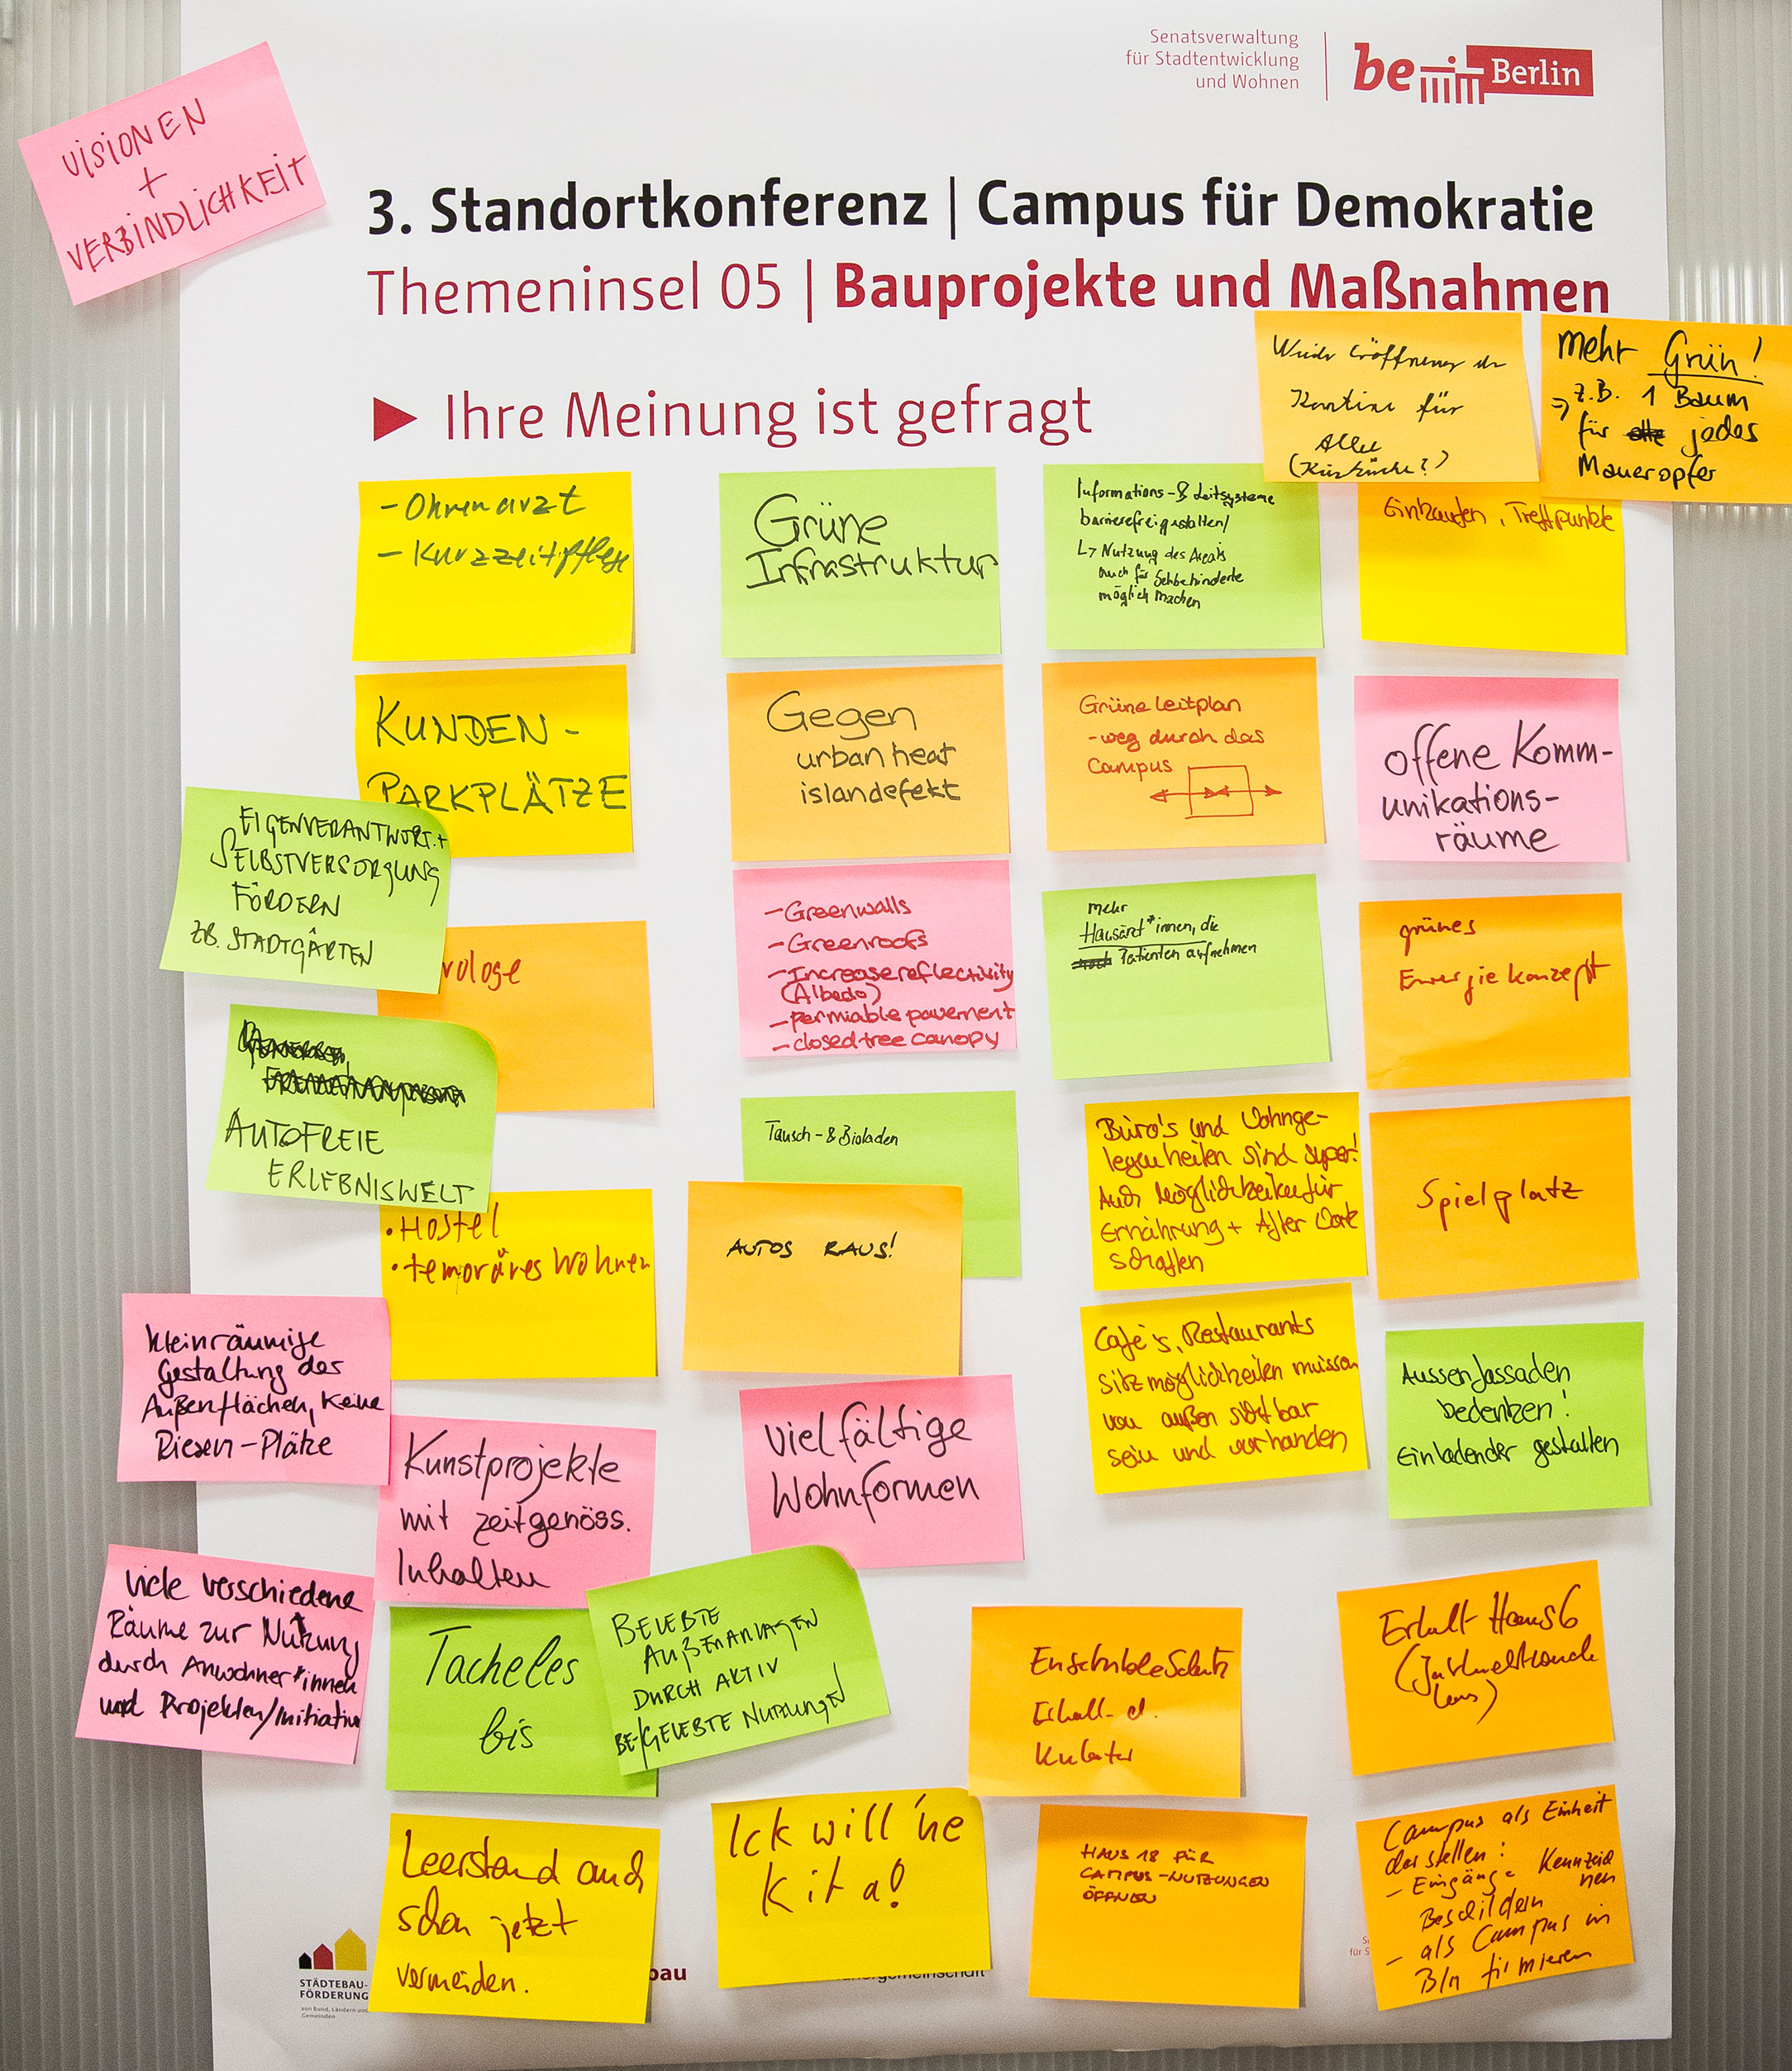 Senatsverwaltung
für Stadtentwicklung
und Wohnen
be Berlin
VISIONEN
+
VERBINDLICHKEIT
3. Standortkonferenz | Campus für Demokratie
Themeninsel 05 | Bauprojekte und Maßnahmen
Ihre Meinung ist gefragt
Kantine für
Alle
mehr Grün!
z.B. 1 Baum
für jedes
Maueropfer
- Ohrenarzt
- Kurzzeitpflege
Grüne
Infrastruktur
Informations- & Leitsysteme
barrierefrei gestalten/
↳ Nutzung des Areals
auch für Sehbehinderte
möglich machen
Einkaufen, Treffpunkte
KUNDEN-
PARKPLÄTZE
Gegen
urban heat
islandefekt
Grüne Leitplan
- weg durch das
Campus
offene Komm-
unikations-
räume
EIGENVERANTWORT.+
SELBSTVERSORGUNG
FÖRDERN
ZB. STADTGÄRTEN
rologe
- Greenwalls
- Greenroofs
- Increase reflectivity
(Albedo)
- permiable pavement
- closed tree canopy
mehr
Hausärzt*innen, die
Patienten aufnehmen
grünes
Energiekonzept
AUTOFREIE
ERLEBNISWELT
Tausch- & Bioladen
Büro's und Wohnge-
legenheiten sind super!
Auch Möglichkeiten für
Ernährung + After Work
schaffen
Spielplatz
• Hostel
• temoräres Wohnen
AUTOS RAUS!
kleinräumige
Gestaltung der
Außenflächen, keine
Riesen-Plätze
Café's, Restaurants
sitzmöglichkeiten müssen
von außen sichtbar
sein und vorhanden
Aussenfassaden
bedenken!
Einladender gestalten
Kunstprojekte
mit zeitgenöss.
Inhalten
vielfältige
Wohnformen
Viele verschiedene
Räume zur Nutzung
durch Anwohner*innen
und Projekten/Initiativen
Tacheles
bis
BELEBTE
AUßENANLAGEN
DURCH AKTIV
BE-/GELEBTE NUTZUNGEN
Ensembleschutz
Erhalt d.
Erhalt Haus 6
Leerstand auch
schon jetzt
vermeiden.
Ick will 'ne
Kita!
HAUS 18 FÜR
CAMPUS-NUTZUNGEN
ÖFFNEN
Campus als Einheit
darstellen:
- Eingänge Kennzeich
nen
Beschildern
- als Campus in
Bln firmieren
STÄDTEBAU-
FÖRDERUNG
von Bund, Ländern und
Gemeinden
bau